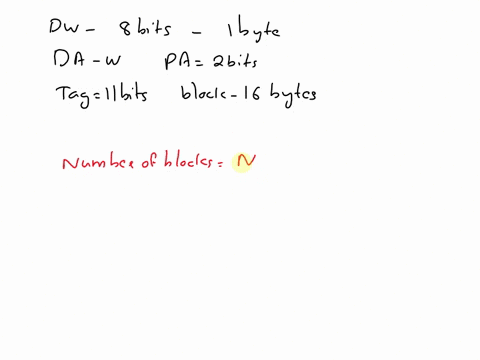 DW - 8 bits - 1 byte
DA - W PA = 2 bits
Tag = 11 bits block - 16 bytes
Number of blocks = N